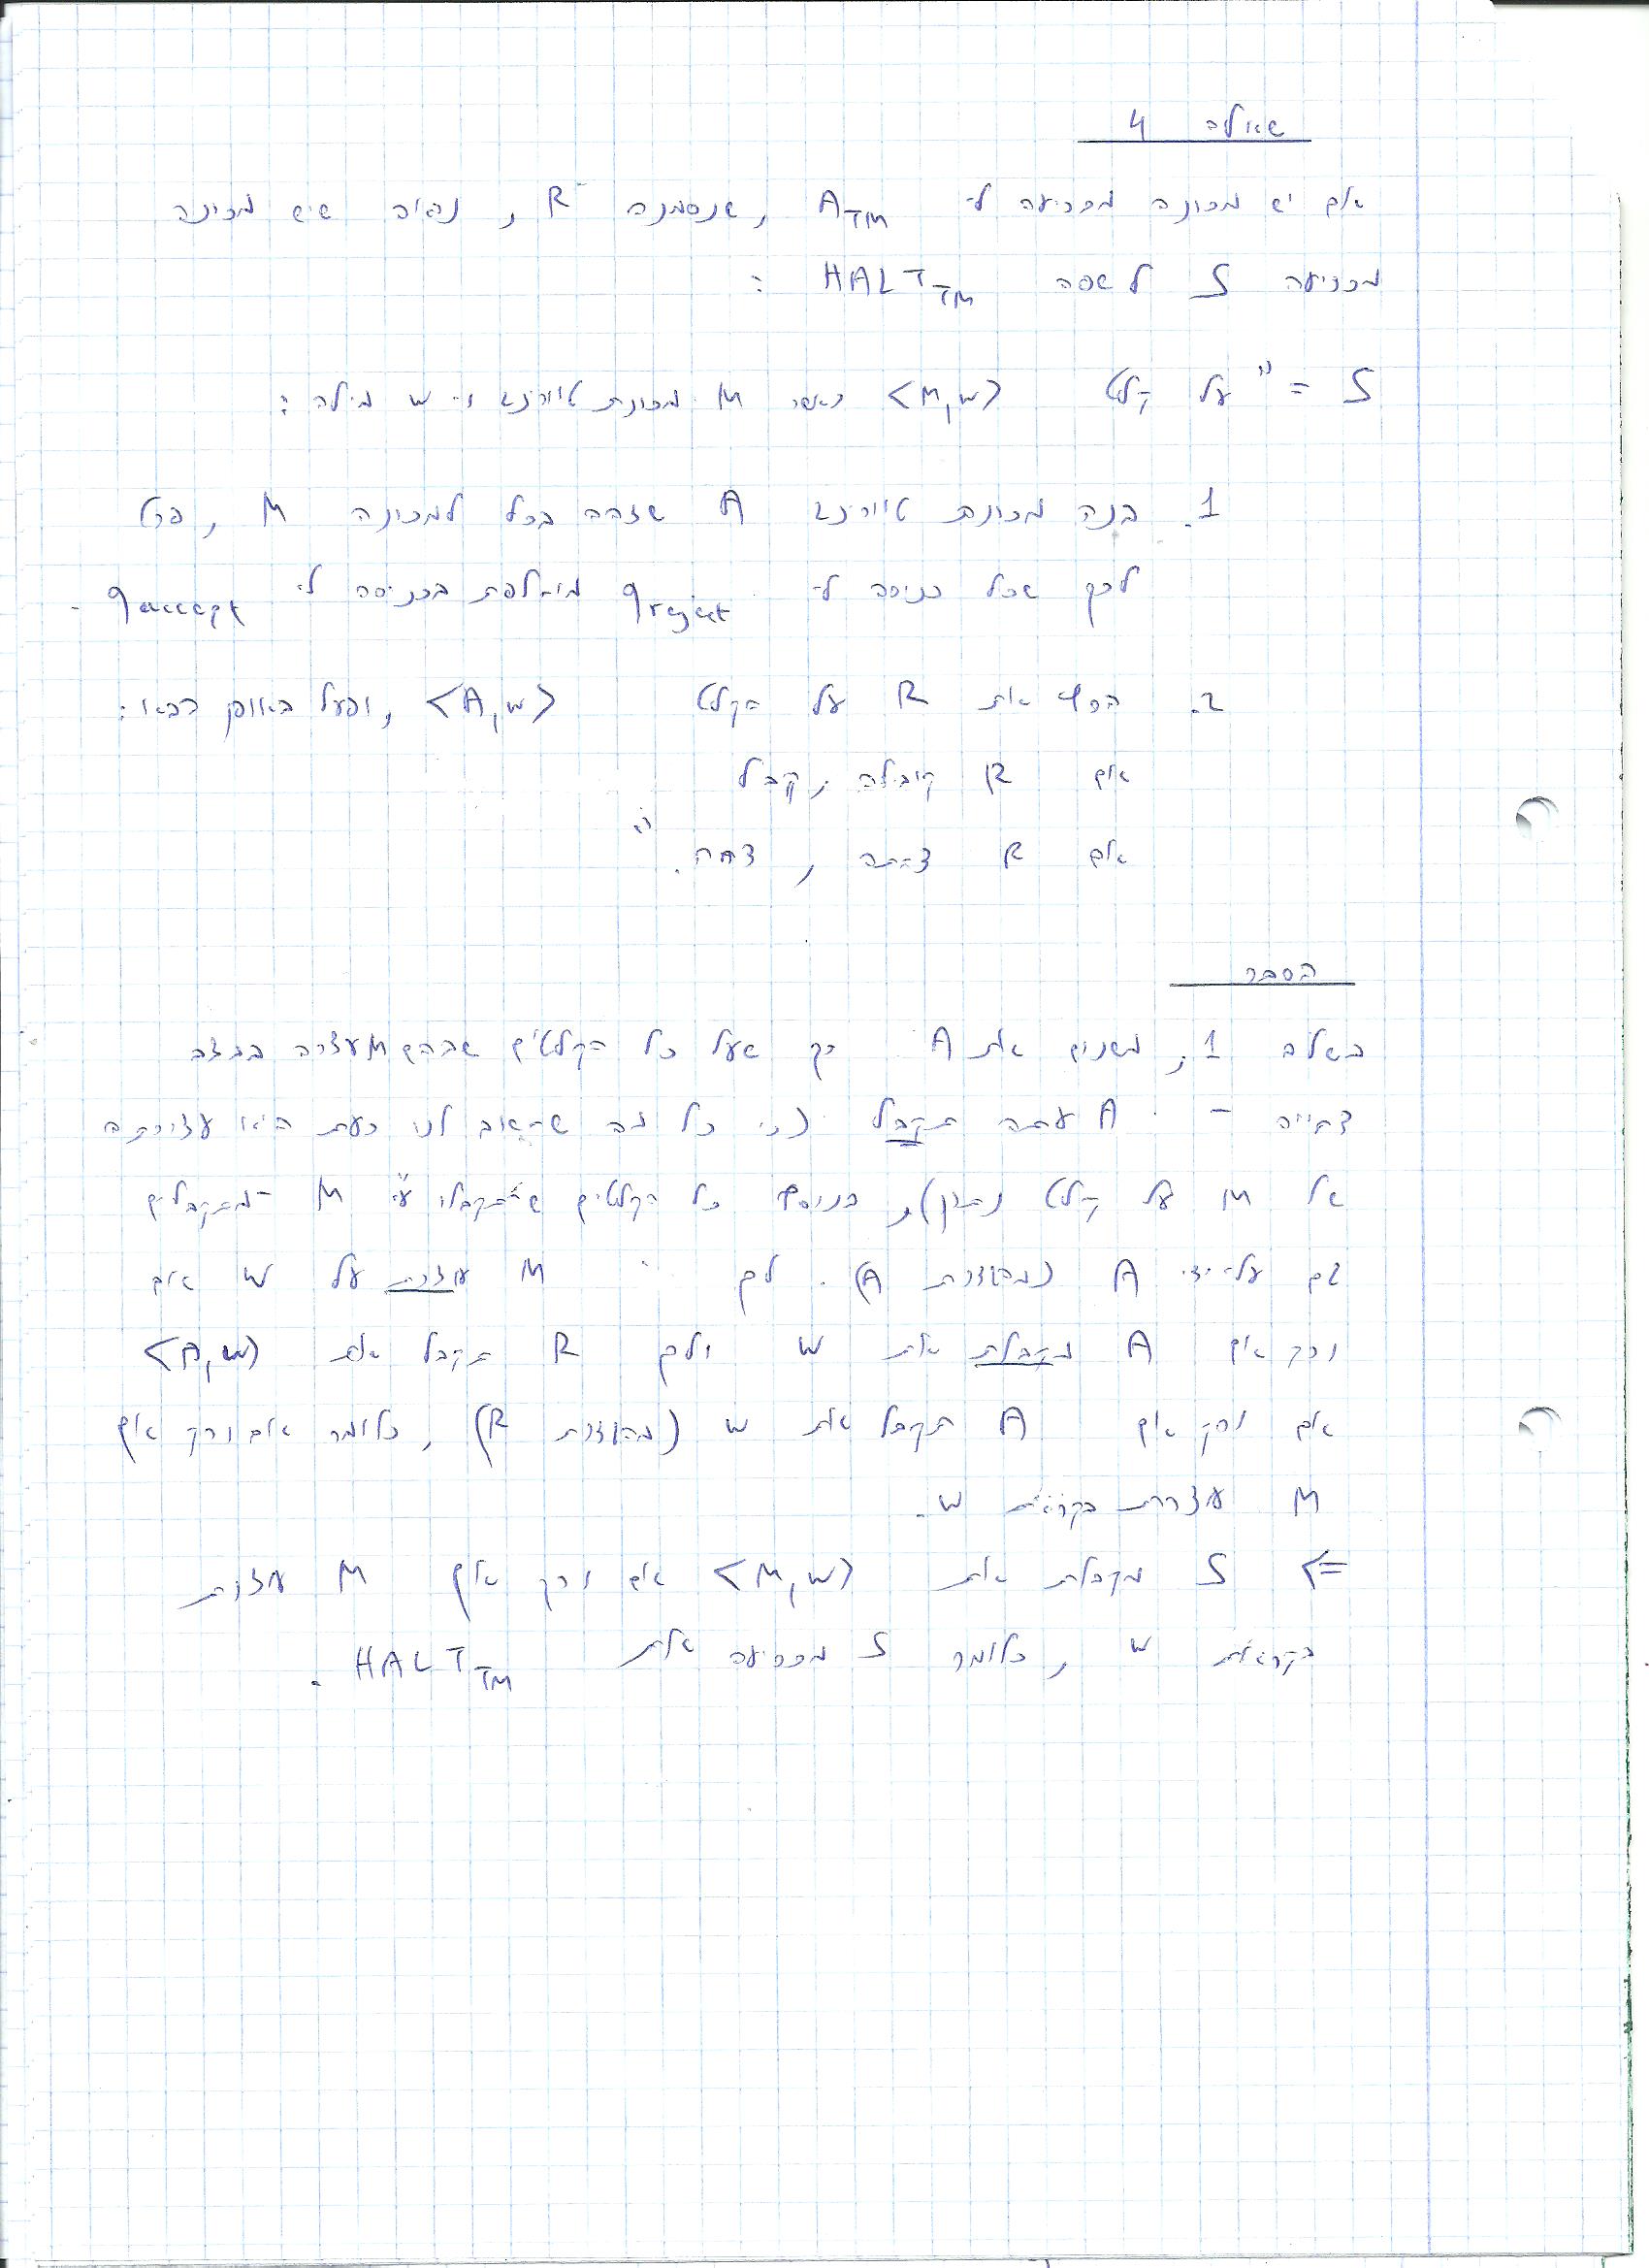 שאלה 4
אם יש מכונה מכריעה ל- A_TM, שנסמנה R, נראה שיש מכונה
מכריעה S לשפה HALT_TM :
S = "על קלט <M,w> כאשר M מכונת טיורינג ו- w מילה :
1. בנה מכונת טיורינג A שזהה בכל למכונה M, פרט
לכך שכל כניסה ל- q_reject מוחלפת בכניסה ל- q_accept.
2. הרץ את R על הקלט <A,w>, ופעל באופן הבא:
אם R קיבלה, קבל
אם R דחתה, דחה."
הסבר
בשלב 1, משנים את A כך שעל כל הקלטים שבהם M עצרה במצב
דחייה - A עתה תקבל (כי כל מה שחשוב לנו כעת היא עצירתה
של M על קלט נתון), בנוסף כל הקלטים שהתקבלו ע"י M - מתקבלים
גם על-ידי A (מהגדרת A). לכן M עוצרת על w אם
ורק אם A מקבלת את w ולכן R תקבל את <A,w>
אם ורק אם A תקבל את w (מהגדרת R), כלומר אם ורק אם
M עוצרת בקריאת w.
<= S מקבלת את <M,w> אם ורק אם M עוצרת
בקריאת w, כלומר S מכריעה את HALT_TM.